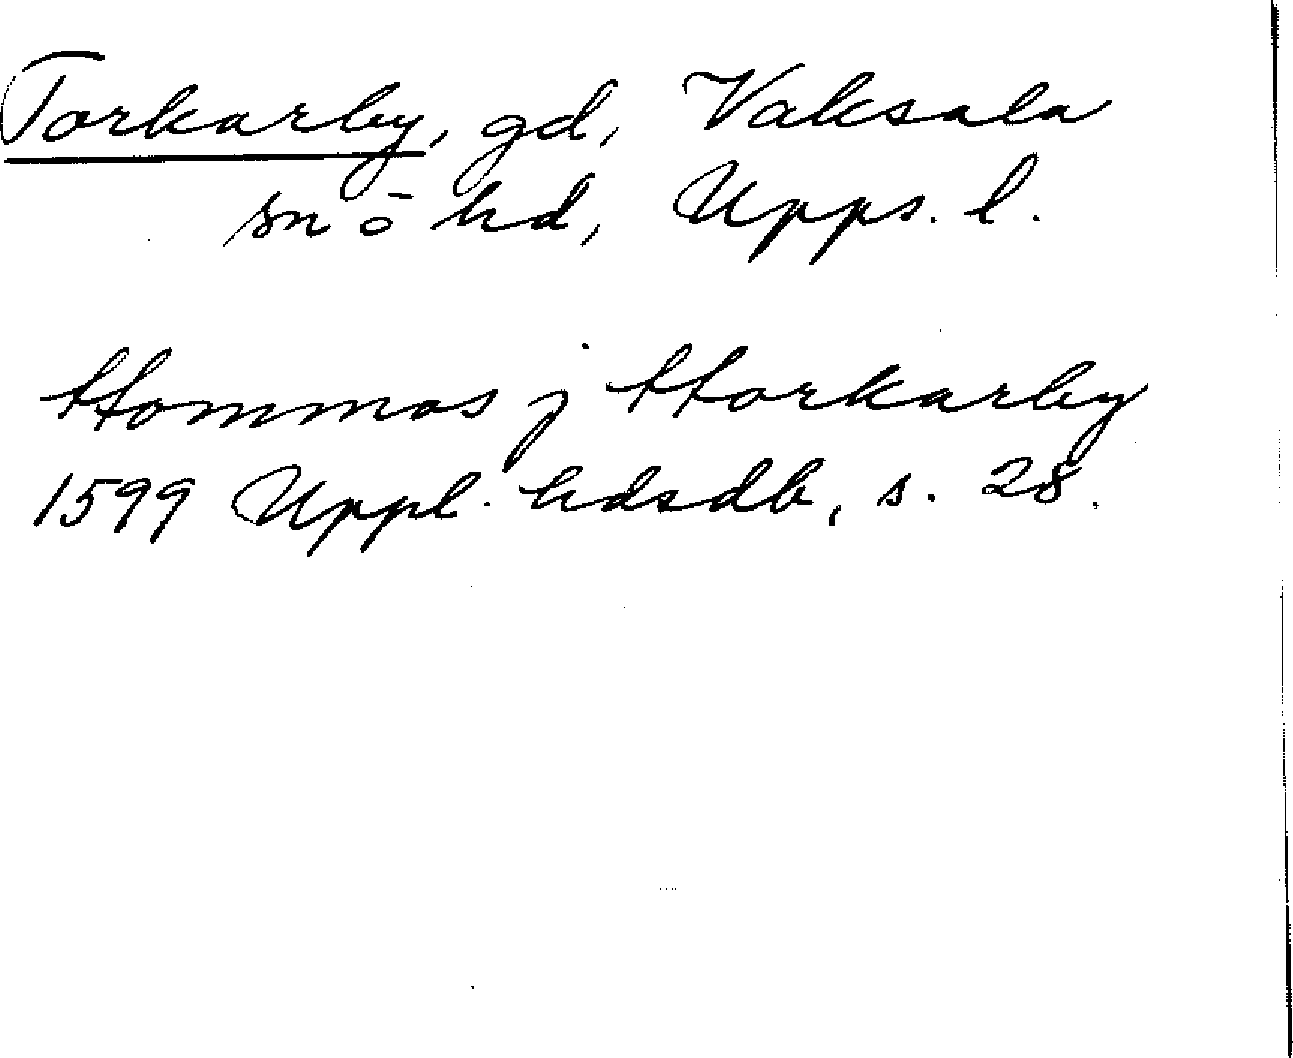 Torkarby, gd, Vaksala
sn o hd, Upps. l.
ttommas j ttorkarby
1599 Uppl. hdsdb, s. 28.